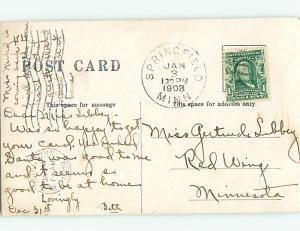 POST CARD
This space for message
This space for address only
SPRINGFIELD
JAN
3
130PM
1908
MINN.
Dear Miss Libbey:
Was so happy to get
your card. Yes indeed
Santa was good to me
and it seems so
good to be at home
Lovingly
Dec 31st
Beth
Miss Gertrude Libbey
Red Wing
Minnesota